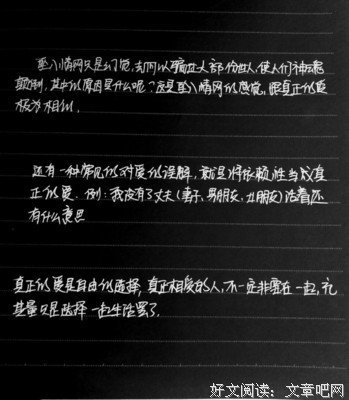 坠入情网只是幻觉,却何以骗过大部份世人,使人们神魂
颠倒,其中的原因是什么呢?这是坠入情网的感觉,跟真正的爱
极为相似。
还有一种常见的对爱的误解,就是将依赖性当成真
正的爱。例:我没有了丈夫(妻子、男朋友、女朋友)活着还
有什么意思
真正的爱是自由的选择,真正相爱的人,不一定非要在一起,充
其量只是选择一起生活罢了。
好文阅读:文章吧网